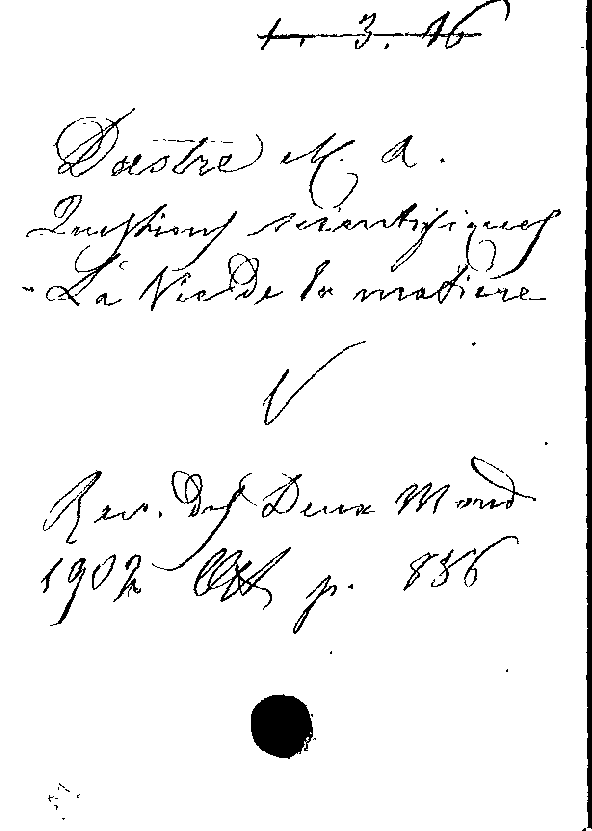 1. 3. 16
Dastre M. A.
Questions scientifiques
- La Vie de la matière
V
Rev. des Deux Mond
1902 Oct p. 836